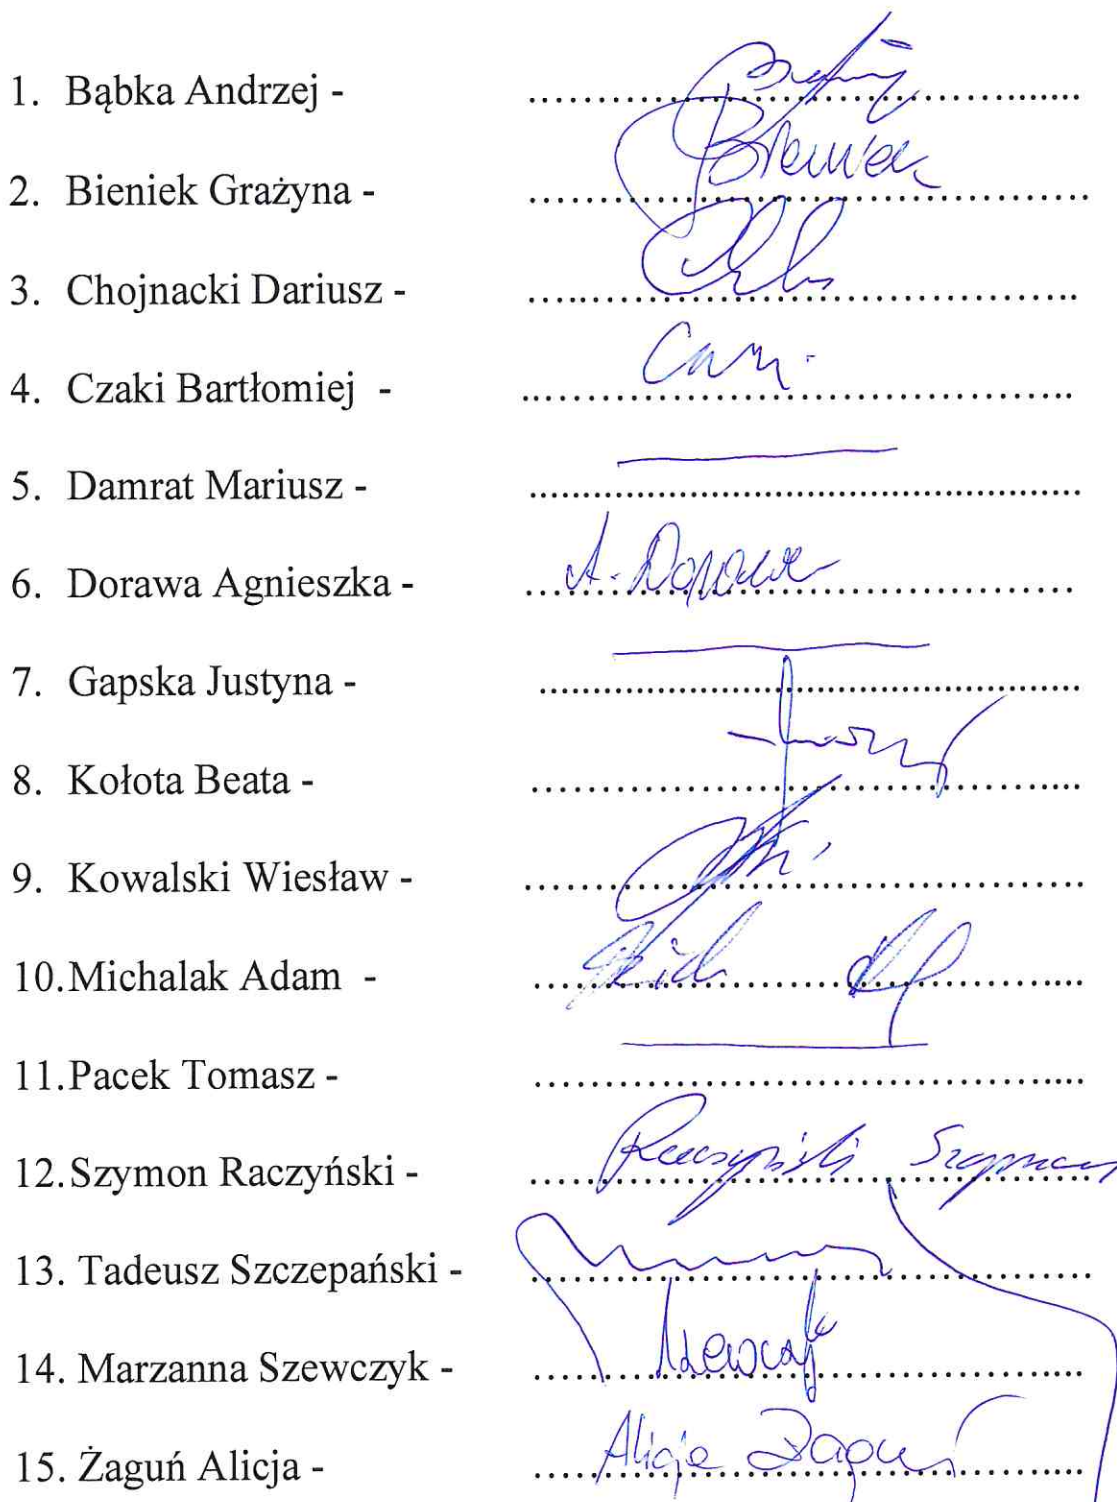 1. Bąbka Andrzej - ...............................................
2. Bieniek Grażyna - ............................................... Bieniek
3. Chojnacki Dariusz - ...............................................
4. Czaki Bartłomiej - ...............................................
5. Damrat Mariusz - ...............................................
6. Dorawa Agnieszka - ............................................... A. Dorawa
7. Gapska Justyna - ...............................................
8. Kołota Beata - ...............................................
9. Kowalski Wiesław - ...............................................
10.Michalak Adam - ...............................................
11.Pacek Tomasz - ...............................................
12.Szymon Raczyński - ............................................... Raczyński Szymon
13. Tadeusz Szczepański - ...............................................
14. Marzanna Szewczyk - ...............................................
15. Żaguń Alicja - ............................................... Alicja Żaguń